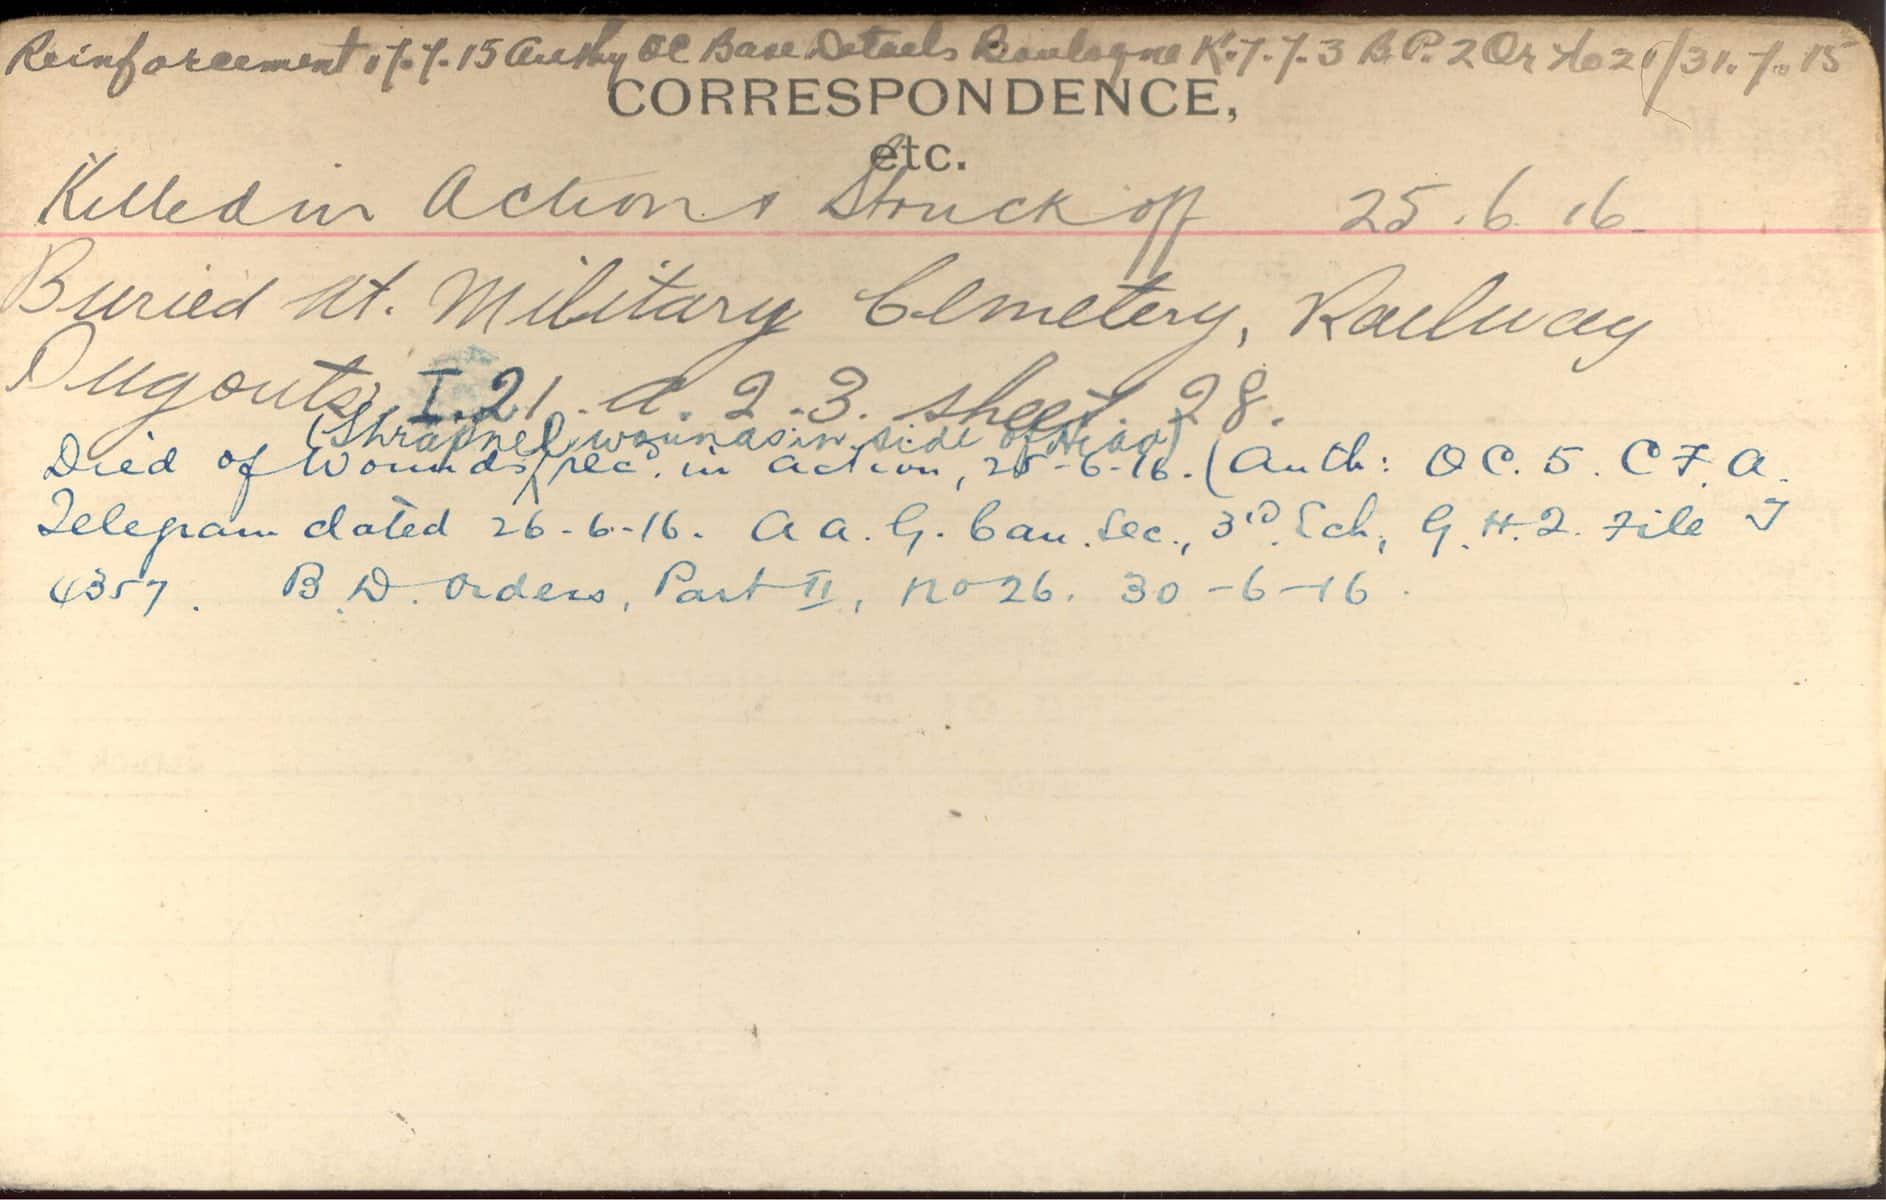 Reinforcement 17.7.15 Authy OC Base Details Boulogne K.7.7.3 B.P. 2 Or No 21/31.7.15
CORRESPONDENCE,
etc.
Killed in Action & Struck off 25.6.16.
Buried at. Military Cemetery, Railway
Dugouts I.21.a.2.3. sheet. 28.
(Shrapnel wounds in side of Head)
Died of Wounds rec. in action, 25-6-16. (Auth: OC. 5. C F. A.
Telegram dated 26-6-16. A A. G. Can. Sec., 3rd Ech, G. H. Q. File J
4357. B. D. Orders, Part II, no 26. 30-6-16.